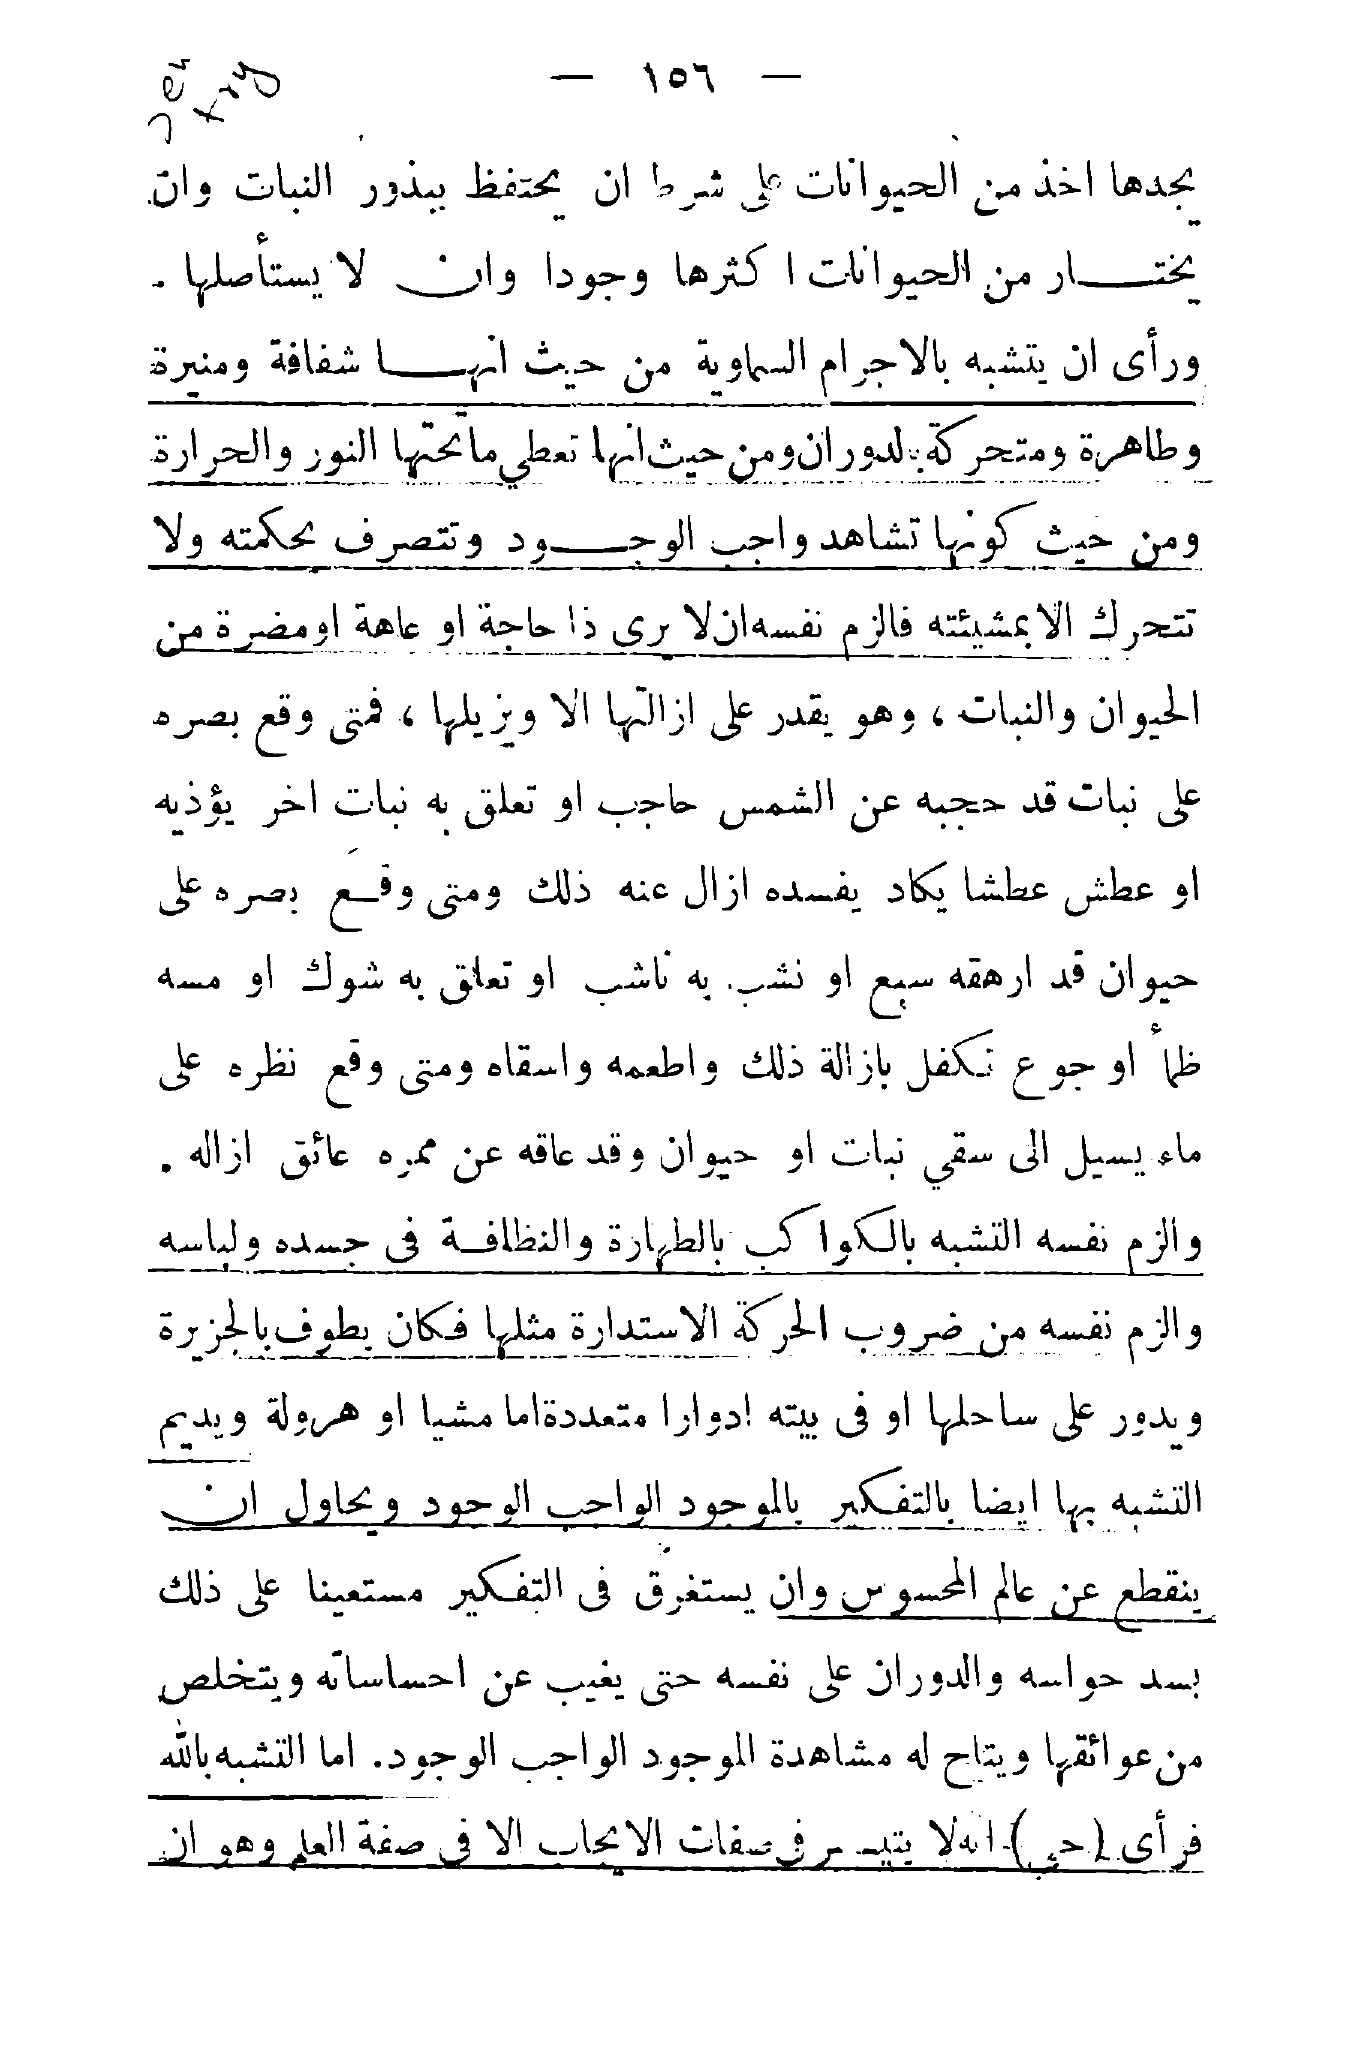 — ١٥٦ —
يجدها اخذ من الحيوانات على شرط ان يحتفظ ببذور النبات وان
يختـــار من الحيوانات اكثرها وجودا وان لا يستأصلها .
ورأى ان يتشبه بالاجرام السماوية من حيث انهـــا شفافة ومنيرة
وطاهرة ومتحركة بالدوران ومن حيث انها تعطي ما تحتها النور والحرارة
ومن حيث كونها تشاهد واجب الوجـــود وتتصرف بحكمته ولا
تتحرك الا بمشيئته فالزم نفسه ان لا يرى ذا حاجة او عاهة او مضرة من
الحيوان والنبات ، وهو يقدر على ازالتها الا ويزيلها ، فمتى وقع بصره
على نبات قد حجبه عن الشمس حاجب او تعلق به نبات اخر يؤذيه
او عطش عطشا يكاد يفسده ازال عنه ذلك ومتى وقـع بصره على
حيوان قد ارهقه سبع او نشب به ناشب او تعلق به شوك او مسه
ظمأ او جوع تكفل بازالة ذلك واطعمه واسقاه ومتى وقع نظره على
ماء يسيل الى سقي نبات او حيوان وقد عاقه عن ممره عائق ازاله .
والزم نفسه التشبه بالكواكب بالطهارة والنظافـة في جسده ولباسه
والزم نفسه من ضروب الحركة الاستدارة مثلها فكان يطوف بالجزيرة
ويدور على ساحلها او في بيته ادوارا متعددة اما مشيا او هرولة ويديم
التشبه بها ايضا بالتفكير بالموجود الواجب الوجود ويحاول ان
ينقطع عن عالم المحسوس وان يستغرق في التفكير مستعينا على ذلك
بسد حواسه والدوران على نفسه حتى يغيب عن احساساته ويتخلص
من عوائقها ويتاح له مشاهدة الموجود الواجب الوجود. اما التشبه بالله
فرأى (حي) انه لا يتيسر في صفات الايجاب الا في صفة العلم وهو ان